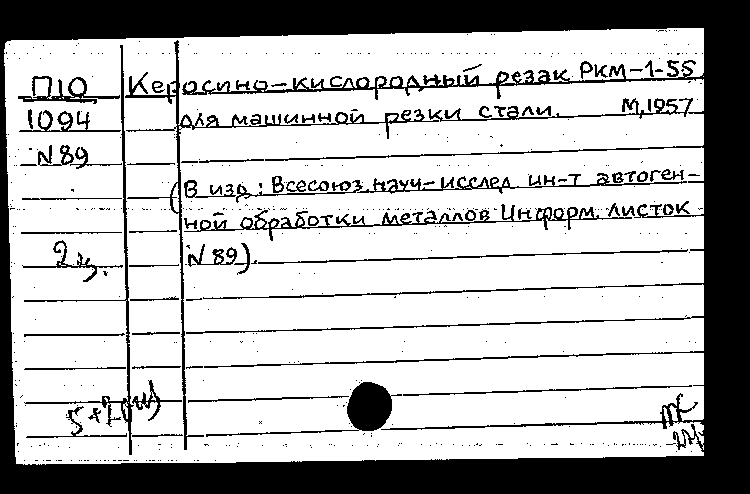 П10
1094
N89
Керосино-кислородный резак Ркм-1-55
для машинной резки стали. М,1957
(В изд: Всесоюз.науч-исслед ин-т автоген-
ной обработки металлов Информ. листок
N 89).
2 э.